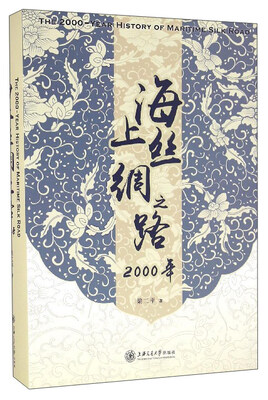 THE 2000-YEAR HISTORY OF MARITIME SILK ROAD
海上丝绸之路
2000年
梁二平 著
上海交通大学出版社
THE 2000-YEAR HISTORY OF MARITIME SILK ROAD